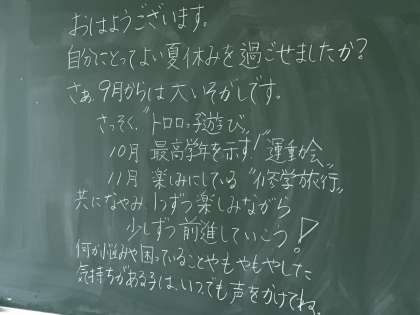 おはようございます。
自分にとってよい夏休みを過ごせましたか?
さぁ、9月からは大いそがしです。
さっそく、"トロロッ子遊び"
10月 最高学年を示す!"運動会"
11月 楽しみにしている"修学旅行"
共になやみ、1つずつ楽しみながら
少しずつ前進していこう!
何か悩みや困っていることやもやもやした
気持ちがある子は、いつでも声をかけてね。